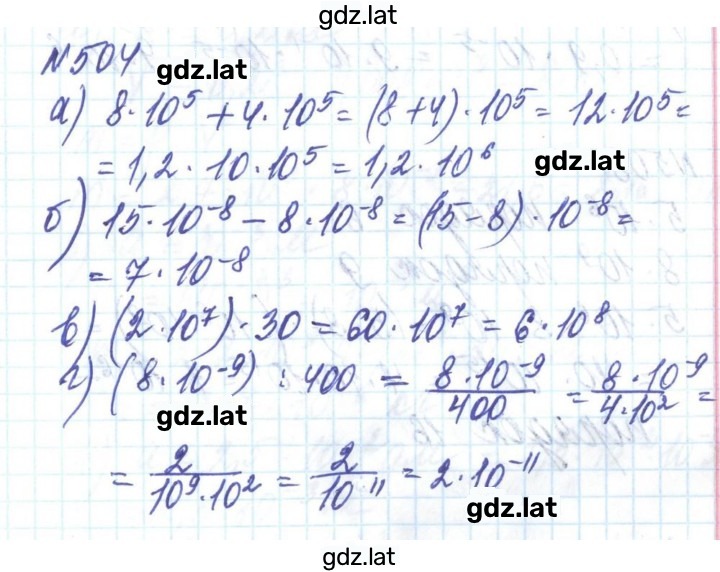 gdz.lat
№504
gdz.lat
а) 8·10⁵ + 4·10⁵ = (8+4)·10⁵ = 12·10⁵ =
= 1,2·10·10⁵ = 1,2·10⁶
gdz.lat
б) 15·10⁻⁸ − 8·10⁻⁸ = (15−8)·10⁻⁸ =
= 7·10⁻⁸
в) (2·10⁷)·30 = 60·10⁷ = 6·10⁸
г) (8·10⁻⁹) : 400 = 8·10⁻⁹/400 = 8·10⁻⁹/4·10² =
gdz.lat
= 2/10⁹·10² = 2/10¹¹ = 2·10⁻¹¹
gdz.lat
gdz.lat